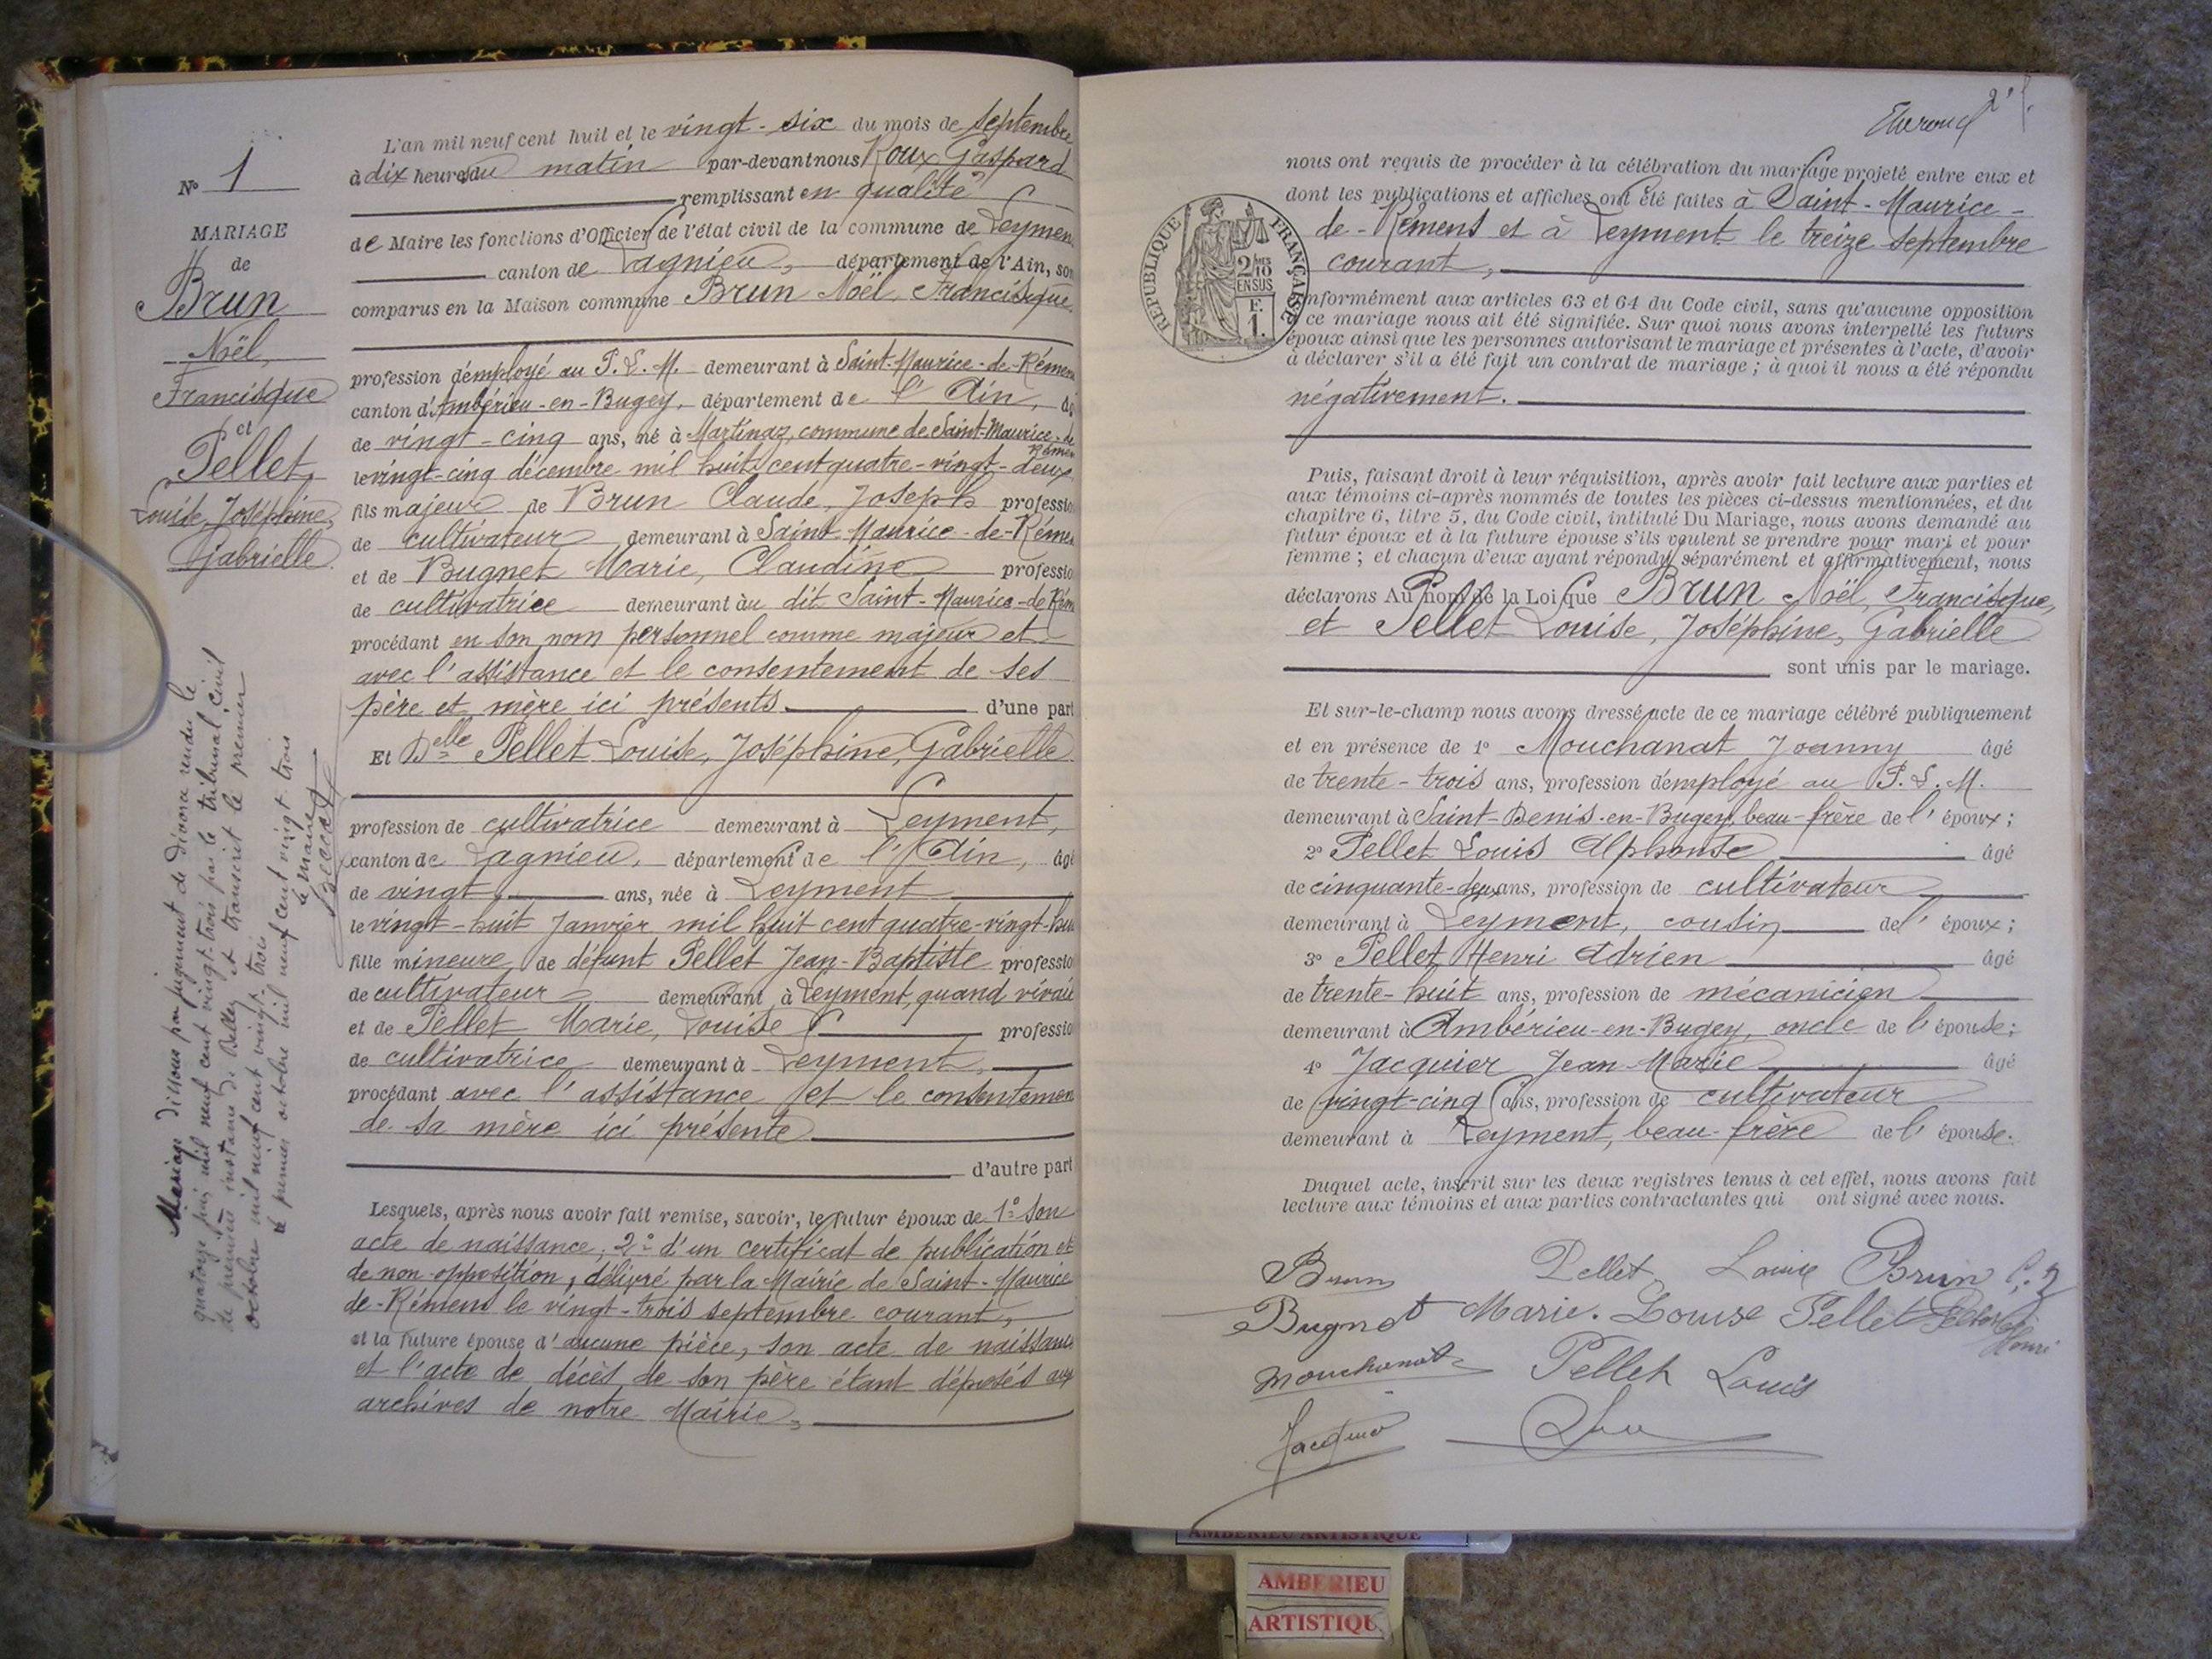 N° 1
MARIAGE
de
Brun
Noël,
Francisque
et
Pellet,
Louise, Joséphine,
Gabrielle.
Mariage dissous par jugement de divorce rendu le
quatorze juin mil neuf cent vingt-trois par le tribunal civil
de première instance de Belley et transcrit le premier
octobre mil neuf cent vingt-trois
le premier octobre mil neuf cent vingt trois
le maire
L'an mil neuf cent huit et le vingt-six du mois de septembre
à dix heures du matin par-devant nous Roux Gaspard
remplissant en qualité
de Maire les fonctions d'Officier de l'état civil de la commune de Leymen
canton de Lagnieu, département de l'Ain, son
comparus en la Maison commune Brun Noël, Francisque,
profession d'employé au P.L.M. demeurant à Saint-Maurice-de-Rémens
canton d'Ambérieu-en-Bugey, département de l'Ain, âgé
de vingt-cinq ans, né à Martinaz, commune de Saint-Maurice-de
Rémens
le vingt-cinq décembre mil huit cent quatre-vingt-deux
fils majeur de Brun Claude, Joseph professio
de cultivateur demeurant à Saint-Maurice-de-Rémens
et de Bugnet Marie, Claudine professio
de cultivatrice demeurant au dit Saint-Maurice-de-Rém
procédant en son nom personnel comme majeur et
avec l'assistance et le consentement de ses
père et mère ici présents d'une part
Et Delle Pellet Louise, Joséphine, Gabrielle
profession de cultivatrice demeurant à Leyment,
canton de Lagnieu, département de l'Ain, âgé
de vingt ans, née à Leyment
le vingt-huit Janvier mil huit cent quatre-vingt-hui
fille mineure de défunt Pellet Jean-Baptiste professio
de cultivateur demeurant à Leyment, quand vivait
et de Pellet Marie, Louise professio
de cultivatrice demeurant à Leyment,
procédant avec l'assistance et le consentemen
de sa mère ici présente
d'autre part
Lesquels, après nous avoir fait remise, savoir, le futur époux de 1° son
acte de naissance, 2° d'un certificat de publication et
de non-opposition, délivré par la Mairie de Saint-Maurice
de-Rémens le vingt-trois septembre courant,
et la future épouse d'aucune pièce, son acte de naissance
et l'acte de décès de son père étant déposés aux
archives de notre Mairie,
nous ont requis de procéder à la célébration du mariage projeté entre eux et
dont les publications et affiches ont été faites à Saint-Maurice-
de-Rémens et à Leyment le treize septembre
courant,
RÉPUBLIQUE FRANÇAISE
2/10 EN SUS
F. 1.
conformément aux articles 63 et 64 du Code civil, sans qu'aucune opposition
à ce mariage nous ait été signifiée. Sur quoi nous avons interpellé les futurs
époux ainsi que les personnes autorisant le mariage et présentes à l'acte, d'avoir
à déclarer s'il a été fait un contrat de mariage ; à quoi il nous a été répondu
négativement.
Puis, faisant droit à leur réquisition, après avoir fait lecture aux parties et
aux témoins ci-après nommés de toutes les pièces ci-dessus mentionnées, et du
chapitre 6, titre 5, du Code civil, intitulé Du Mariage, nous avons demandé au
futur époux et à la future épouse s'ils veulent se prendre pour mari et pour
femme ; et chacun d'eux ayant répondu séparément et affirmativement, nous
déclarons Au nom de la Loi que Brun Noël, Francisque,
et Pellet Louise, Joséphine, Gabrielle
sont unis par le mariage.
Et sur-le-champ nous avons dressé acte de ce mariage célébré publiquement
et en présence de 1° Mouchanat Joanny âgé
de trente-trois ans, profession d'employé au P.L.M.
demeurant à Saint-Denis-en-Bugey, beau-frère de l'époux ;
2° Pellet Louis Alphonse âgé
de cinquante-deux ans, profession de cultivateur
demeurant à Leyment, cousin de l'époux ;
3° Pellet Henri Adrien âgé
de trente-huit ans, profession de mécanicien
demeurant à Ambérieu-en-Bugey, oncle de l'épouse ;
4° Jacquier Jean-Marie âgé
de vingt-cinq ans, profession de cultivateur
demeurant à Leyment, beau-frère de l'épouse.
Duquel acte, inscrit sur les deux registres tenus à cet effet, nous avons fait
lecture aux témoins et aux parties contractantes qui ont signé avec nous.
Brun Pellet Louise Brun
Bugnet Marie. Louise Pellet Pellet Henri
Mouchanat Pellet Louis
AMBERIEU ARTISTIQUE
AMBERIEU
ARTISTIQU